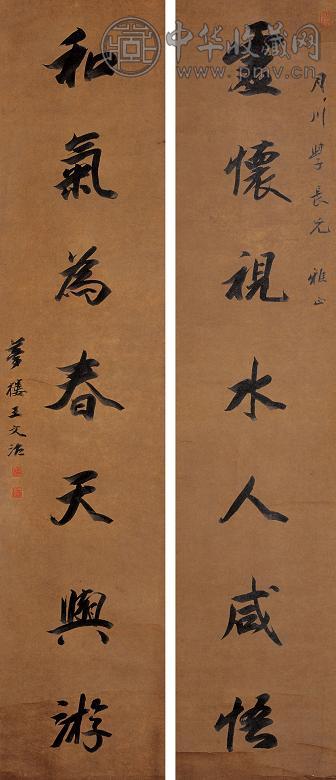 月川學長兄 雅正
靈懷視水人咸悟
和氣為春天與游
夢樓王文治
中华收藏网
www.pmv.cn